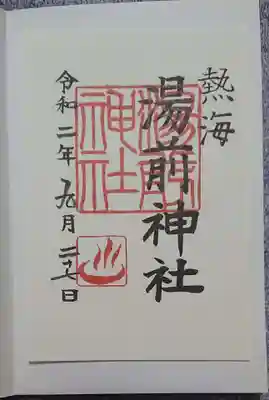 熱海
湯前神社
湯前神社
令和二年九月二十七日